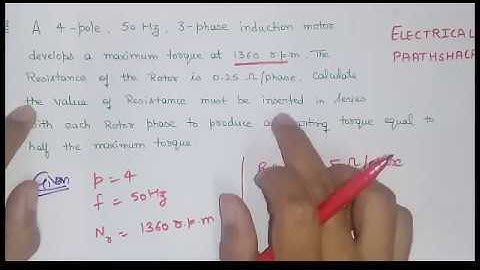 A 4-pole, 50 Hz, 3-phase induction motor
develops a maximum torque at 1360 r.p.m. The
Resistance of the Rotor is 0.25 Ω/phase. Calculate
the value of Resistance must be inserted in series
with each Rotor phase to produce a starting torque equal to
half the maximum torque
ELECTRICAL
PAATHSHALA
Given
P = 4
f = 50 Hz
Nr = 1360 r.p.m